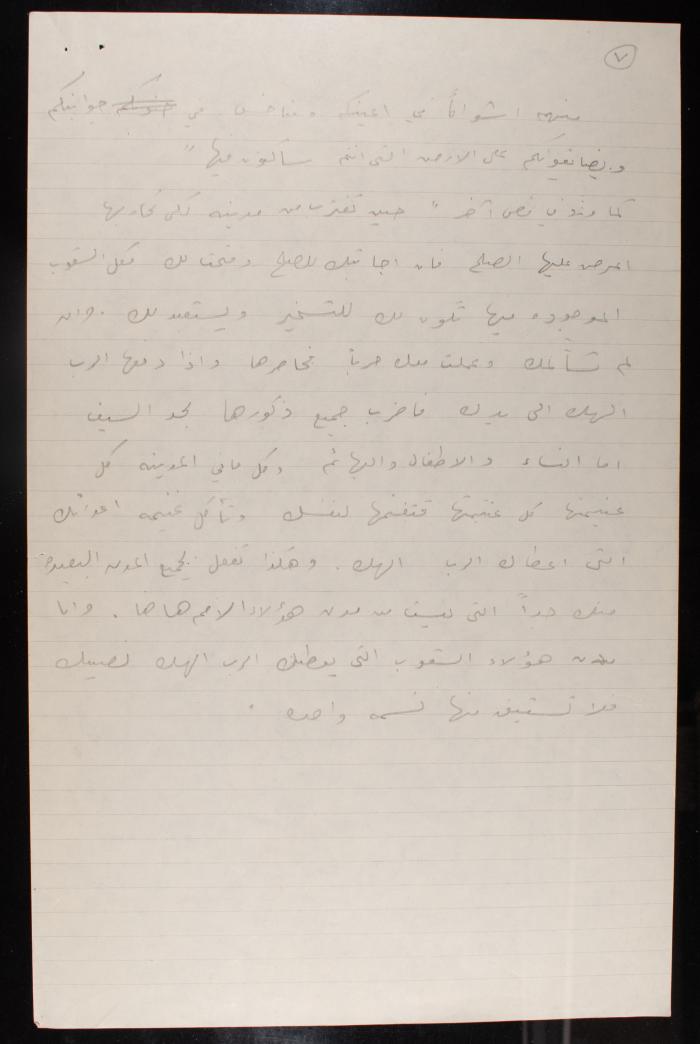 ٧
منهم اشواكاً في اعينكم ومناخس في جوانبكم
ويضايقونكم على الارض التي انتم ساكنون فيها"
كما ورد في نص آخر " حين تقترب من مدينه لكي تحاربها
اعرض عليها الصلح فان اجابتك للصلح وفتحت لك فكل الشعوب
الموجوده فيها تكون لك للتسخير ويستعبد لك . وان
لم تسالمك وعملت معك حرباً فحاصرها واذا دفعها الرب
الهك الى يدك فاضرب جميع ذكورها بحد السيف
اما النساء والاطفال والبهائم وكل ما في المدينه كل
غنيمتها كل غنيمتها فتغنمها لنفسك وتأكل غنيمه اعدائك
التي اعطاك الرب الهك . وهكذا تفعل بجميع المدن البعيدة
منك جداً التي ليست من مدن هؤلاء الامم هاهنا . واما
مدن هؤلاء الشعوب التي يعطيك الرب الهك نصيبك
فلا تستبق منها نسمه واحده .